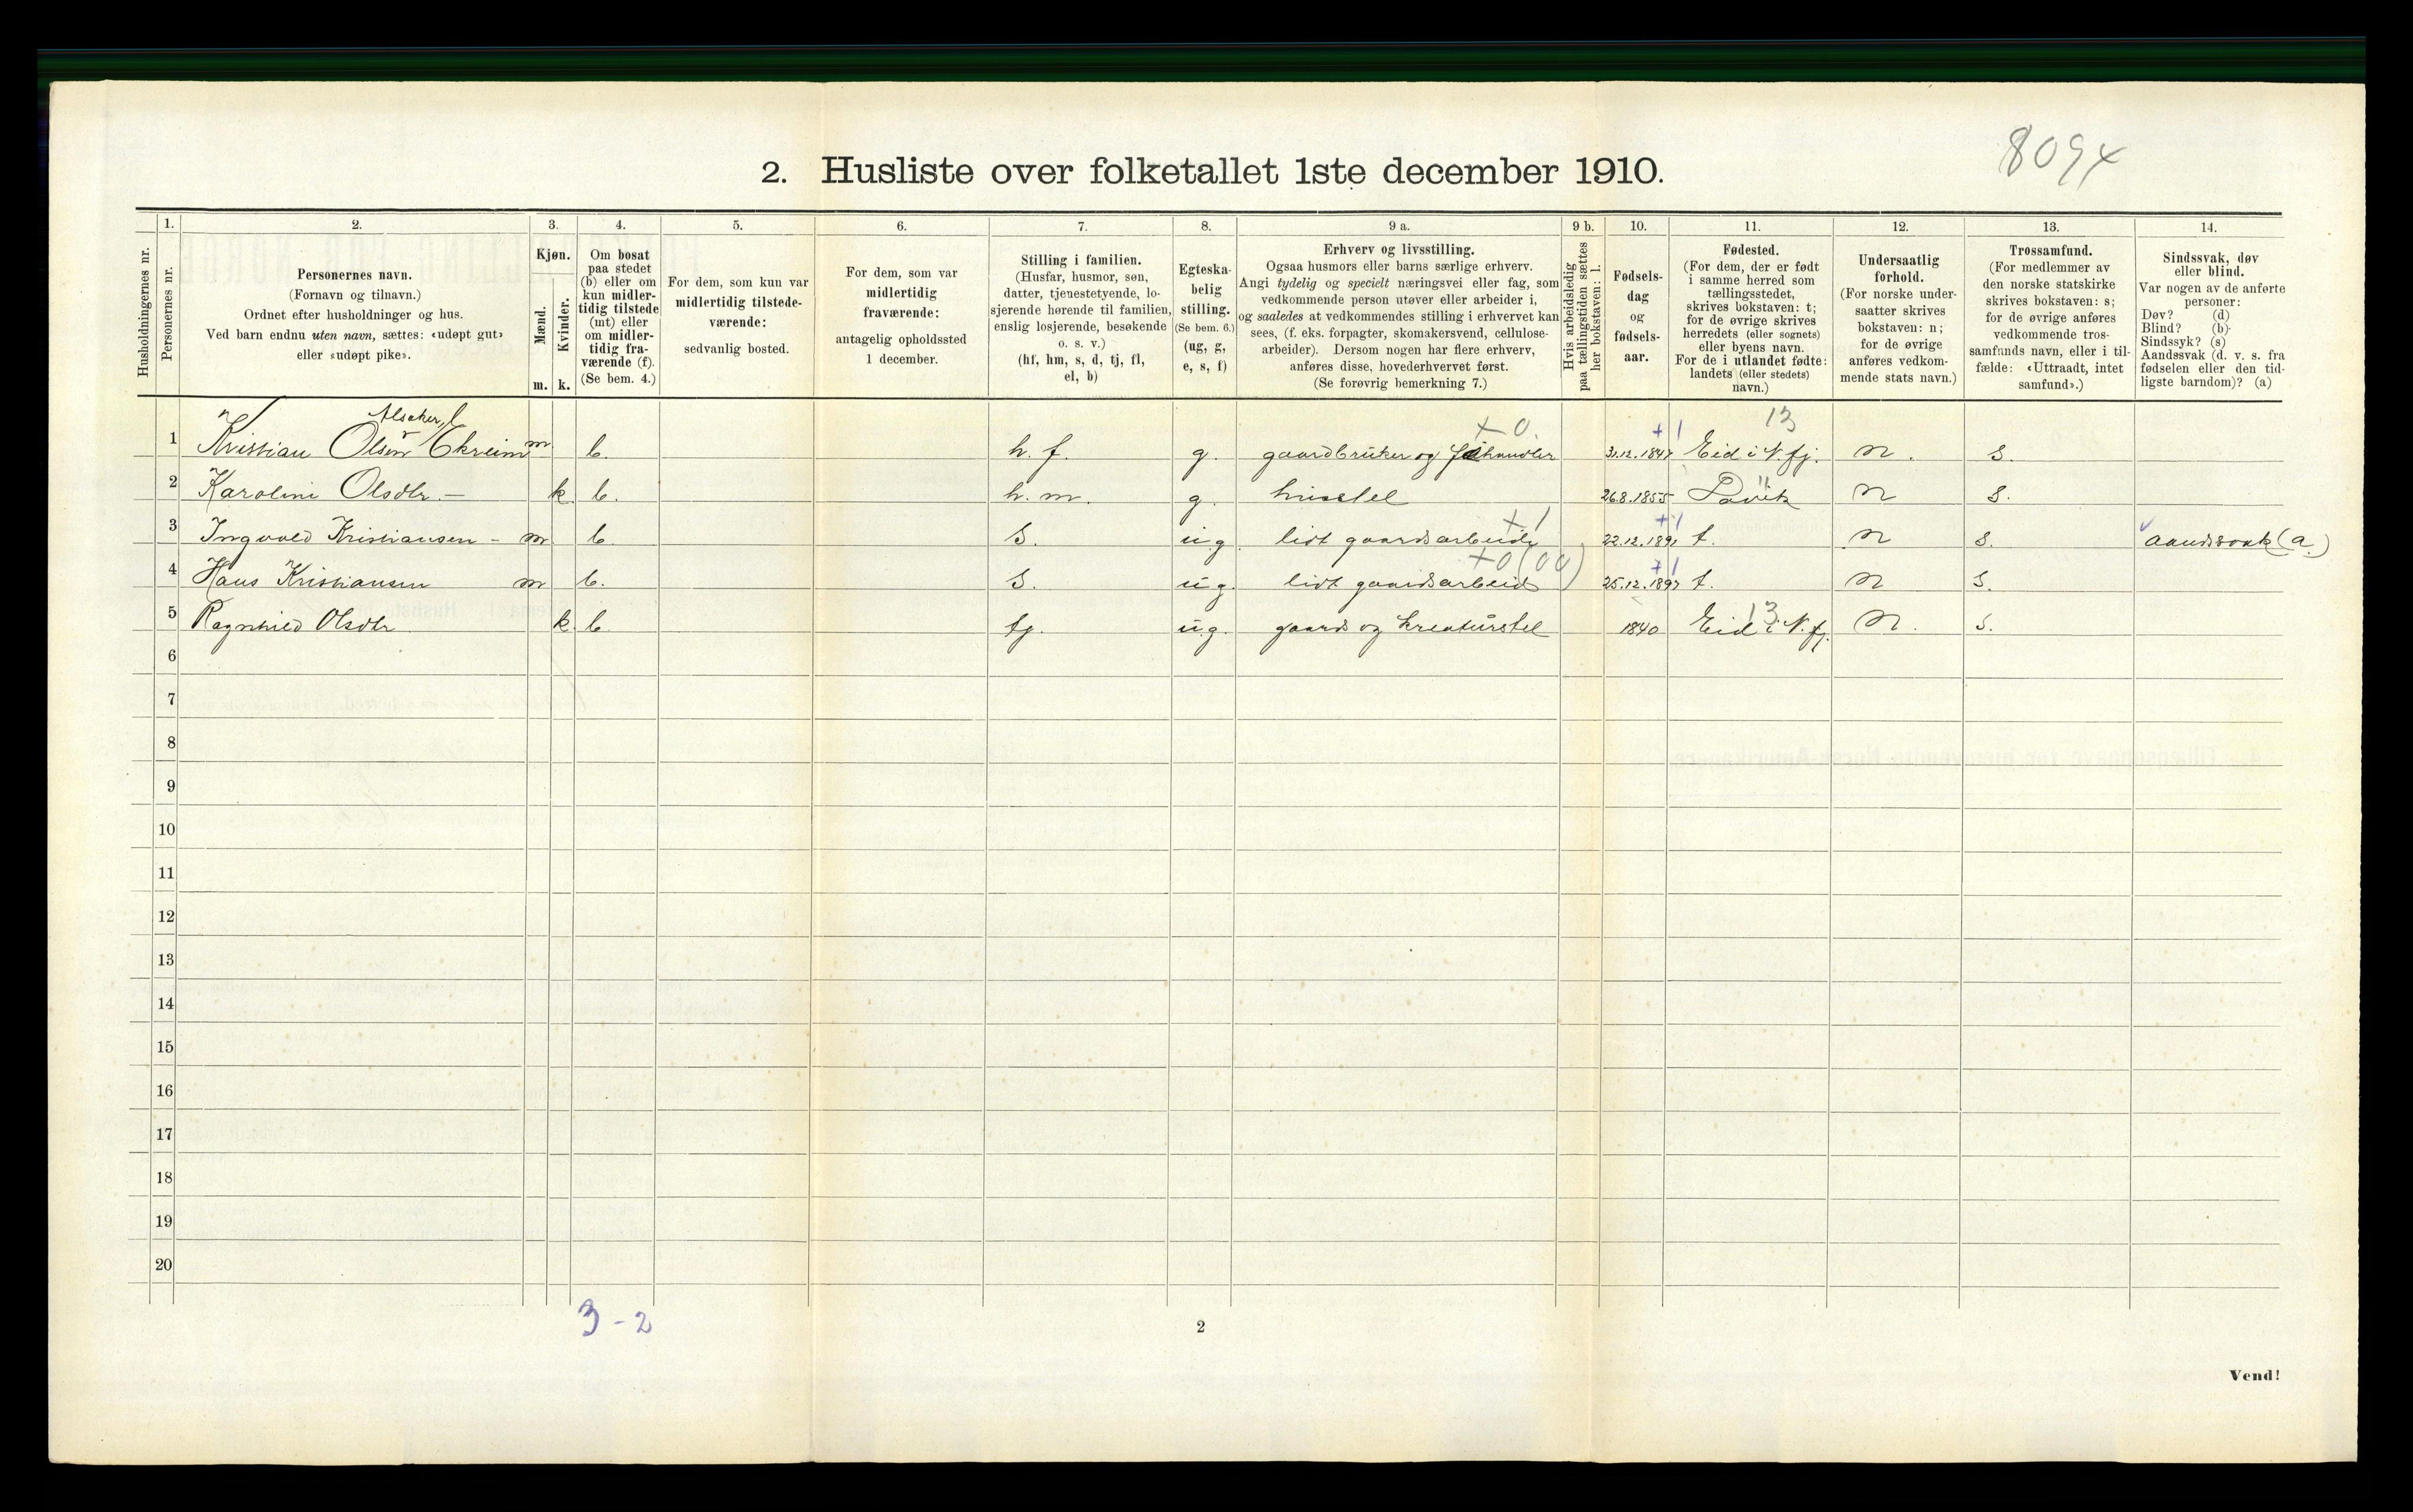 8094
2. Husliste over folketallet 1ste december 1910.
Husholdningernes nr.
1.
Personernes nr.
2.
Personernes navn.
(Fornavn og tilnavn.)
Ordnet efter husholdninger og hus.
Ved barn endnu uten navn, sættes: «udøpt gut»
eller «udøpt pike».
3.
Kjøn.
Mænd.
Kvinder.
m. k.
4.
Om bosat
paa stedet
(b) eller om
kun midler-
tidig tilstede
(mt) eller
om midler-
tidig fra-
værende (f).
(Se bem. 4.)
5.
For dem, som kun var
midlertidig tilstede-
værende:
sedvanlig bosted.
6.
For dem, som var
midlertidig
fraværende:
antagelig opholdssted
1 december.
7.
Stilling i familien.
(Husfar, husmor, søn,
datter, tjenestetyende, lo-
sjerende hørende til familien,
enslig losjerende, besøkende
o. s. v.)
(hf, hm, s, d, tj, fl,
el, b)
8.
Egteska-
belig
stilling.
(Se bem. 6.)
(ug, g,
e, s, f)
9 a.
Erhverv og livsstilling.
Ogsaa husmors eller barns særlige erhverv.
Angi tydelig og specielt næringsvei eller fag, som
vedkommende person utøver eller arbeider i,
og saaledes at vedkommendes stilling i erhvervet kan
sees, (f. eks. forpagter, skomakersvend, cellulose-
arbeider). Dersom nogen har flere erhverv,
anføres disse, hovederhvervet først.
(Se forøvrig bemerkning 7.)
9 b.
Hvis arbeidsledig
paa tællingstiden sættes
her bokstaven: l.
10.
Fødsels-
dag
og
fødsels-
aar.
11.
Fødested.
(For dem, der er født
i samme herred som
tællingsstedet,
skrives bokstaven: t;
for de øvrige skrives
herredets (eller sognets)
eller byens navn.
For de i utlandet fødte:
landets (eller stedets)
navn.)
12.
Undersaatlig
forhold.
(For norske under-
saatter skrives
bokstaven: n;
for de øvrige
anføres vedkom-
mende stats navn.)
13.
Trossamfund.
(For medlemmer av
den norske statskirke
skrives bokstaven: s;
for de øvrige anføres
vedkommende tros-
samfunds navn, eller i til-
fælde: «Uttraadt, intet
samfund».)
14.
Sindssvak, døv
eller blind.
Var nogen av de anførte
personer:
Døv? (d)
Blind? (b)
Sindssyk? (s)
Aandssvak (d. v. s. fra
fødselen eller den tid-
ligste barndom)? (a)
+0 +1 13
1 Kristian Olsen Ekreim m b. h. f. g. gaardbruker og 31.12.1847 Eid i N.fj. n. s.
2 Karolini Olsdtr. — k b. h. m. g. husstel 26.8.1855 n s.
+1 +1
3 Ingvald Kristiansen - m b. s. ug. lidt gaardsarbeide 22.12.1891 t. n s. aandssvak (a.)
+0 (00) +1
4 Hans Kristiansen m b. s. ug. lidt gaardsarbeid 25.12.1897 t. n s
13
5 Ragnhild Olsdtr k b. tj. ug. gaards og kreaturstel 1840 Eid i N.fj. n. s.
6
7
8
9
10
11
12
13
14
15
16
17
18
19
20
3 - 2
2
Vend!